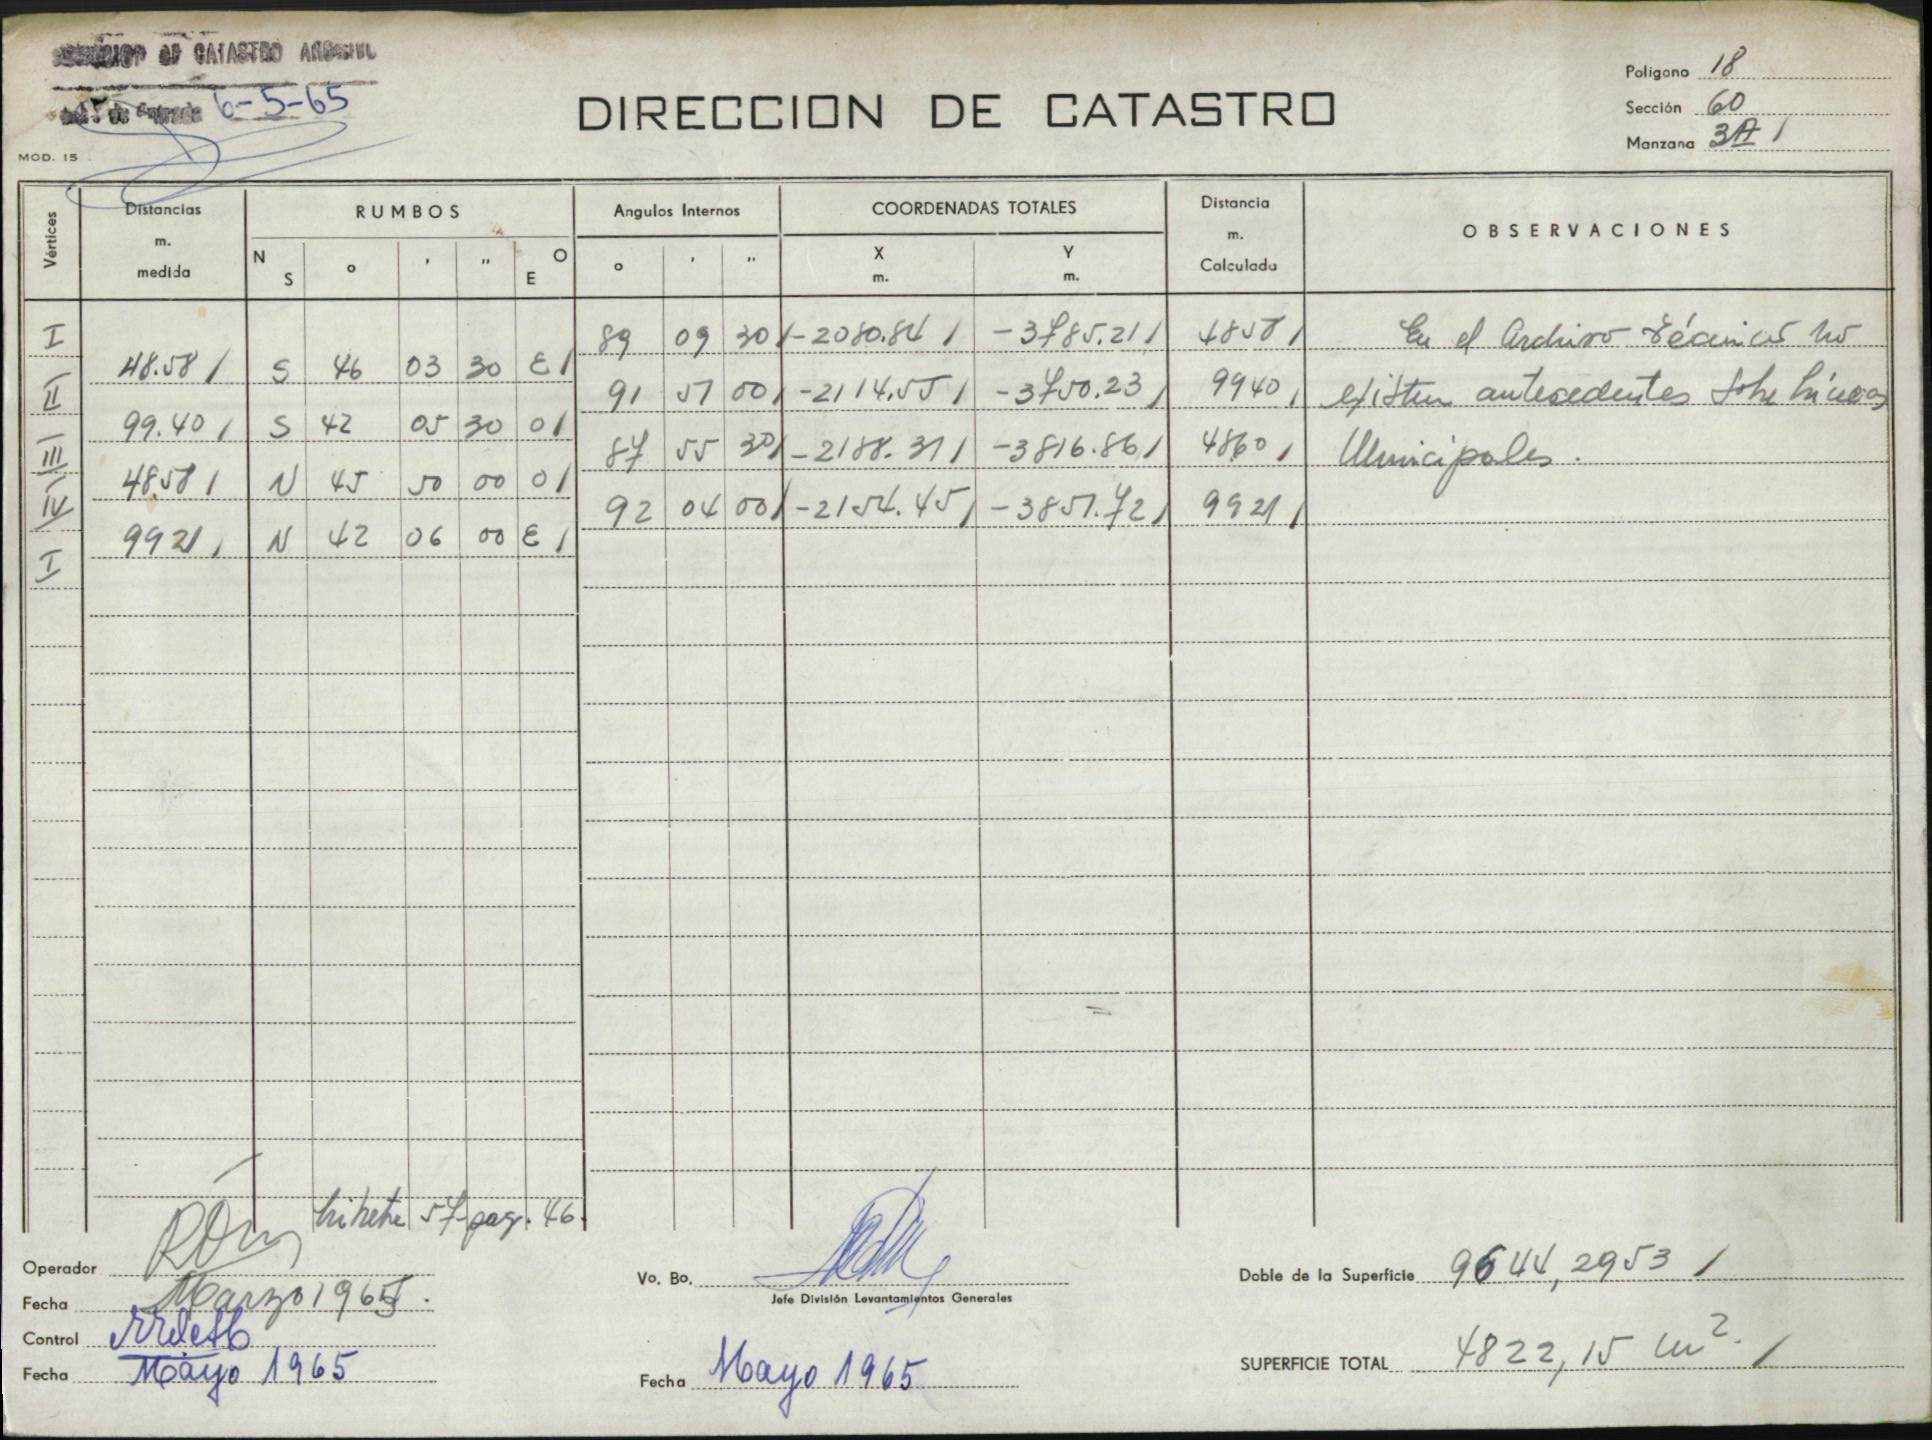 DIRECCION DE CATASTRO
6-5-65
MOD. 15
Polígono 18
Sección 60
Manzana 3A /
Vértices
Distancias m. medida
RUMBOS
N S ° ' " O E
Angulos Internos
° ' "
COORDENADAS TOTALES
X m. Y m.
Distancia m. Calculada
OBSERVACIONES
I 88 09 30 / -2080.84 / -3785.21 / 4858 / En el Archivo técnico no
48.58 / S 46 03 30 E /
II 91 51 00 / -2114.55 / -3750.23 / 9940 / existen antecedentes sobre Líneas
99.40 / S 42 05 30 O /
III 87 55 30 / -2188.31 / -3816.86 / 4860 / Municipales.
48.58 / N 45 50 00 O /
IV 92 04 00 / -2154.45 / -3851.72 / 9921 /
9921 / N 42 06 00 E /
I
Libreta 57-pag. 46.
Operador
Fecha Marzo 1965.
Control
Fecha Mayo 1965
Vo. Bo.
Jefe División Levantamientos Generales
Fecha Mayo 1965
Doble de la Superficie 9644,2953 /
SUPERFICIE TOTAL 4822,15 m2. /